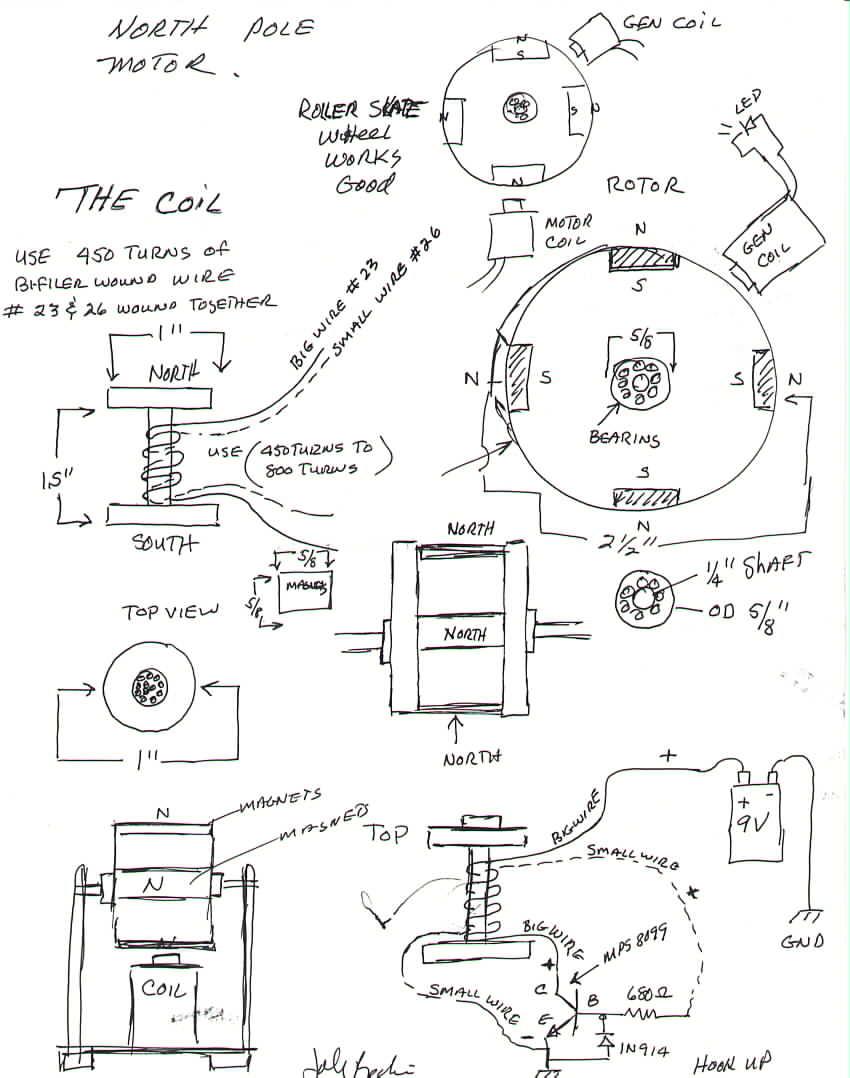 NORTH POLE
MOTOR.
GEN COIL
N
S
N
S
N
N
ROLLER SKATE
WHEEL
WORKS
GOOD
MOTOR
COIL
LED
GEN
COIL
ROTOR
N
S
N
S
S
N
S
N
5/8
BEARING
2 1/2"
THE COIL
USE 450 TURNS OF
BI-FILER WOUND WIRE
# 23 & 26 WOUND TOGETHER
1"
NORTH
BIG WIRE #23
SMALL WIRE #26
USE (450 TURNS TO
800 TURNS)
1.5"
SOUTH
5/8
MAGNETS
5/8
TOP VIEW
1"
NORTH
NORTH
NORTH
1/4" SHAFT
OD 5/8"
N
MAGNETS
MAGNETS
N
N
COIL
TOP
BIG WIRE
+
SMALL WIRE
+ -
9V
GND
BIG WIRE
MPS8099
SMALL WIRE
C
B
E
-
680Ω
1N914
HOOK UP